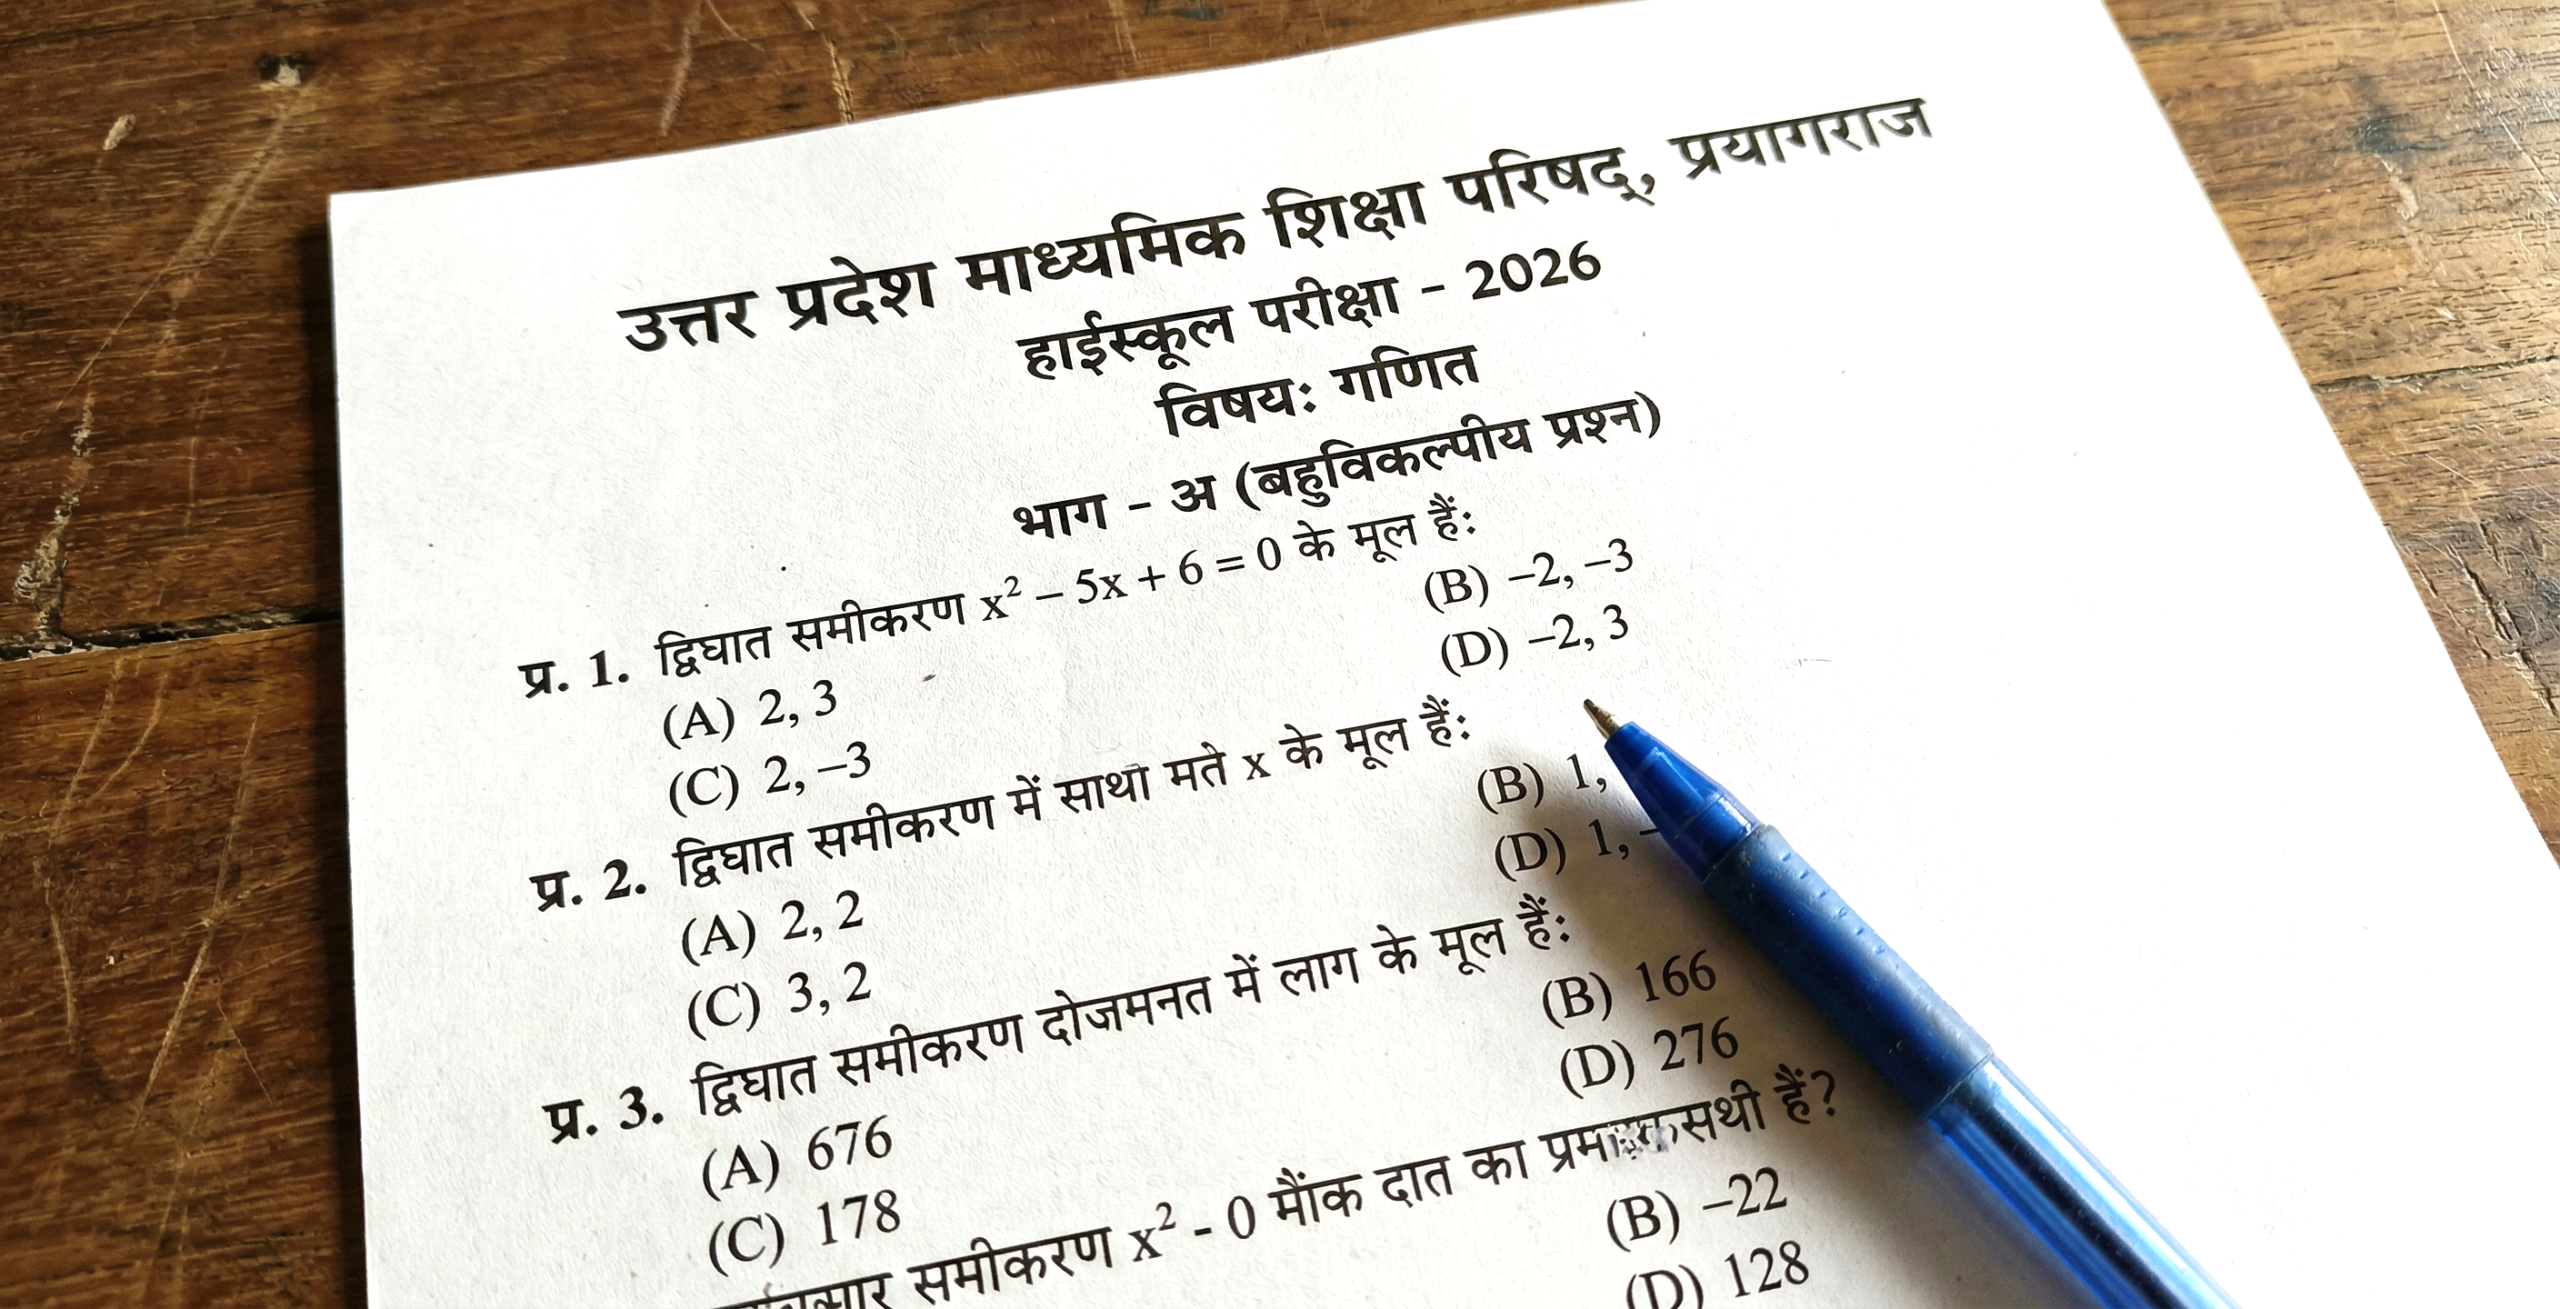 उत्तर प्रदेश माध्यमिक शिक्षा परिषद्, प्रयागराज
हाईस्कूल परीक्षा - 2026
विषय: गणित
भाग - अ (बहुविकल्पीय प्रश्न)
प्र. 1. द्विघात समीकरण x² – 5x + 6 = 0 के मूल हैं:
(A) 2, 3 (B) –2, –3
(C) 2, –3 (D) –2, 3
प्र. 2. द्विघात समीकरण में साथा मते x के मूल हैं:
(A) 2, 2 (B) 1,
(C) 3, 2 (D) 1, -
प्र. 3. द्विघात समीकरण दोजमनत में लाग के मूल हैं:
(A) 676 (B) 166
(C) 178 (D) 276
समीकरण x² - 0 दात का हैं?
(B) –22
(D) 128